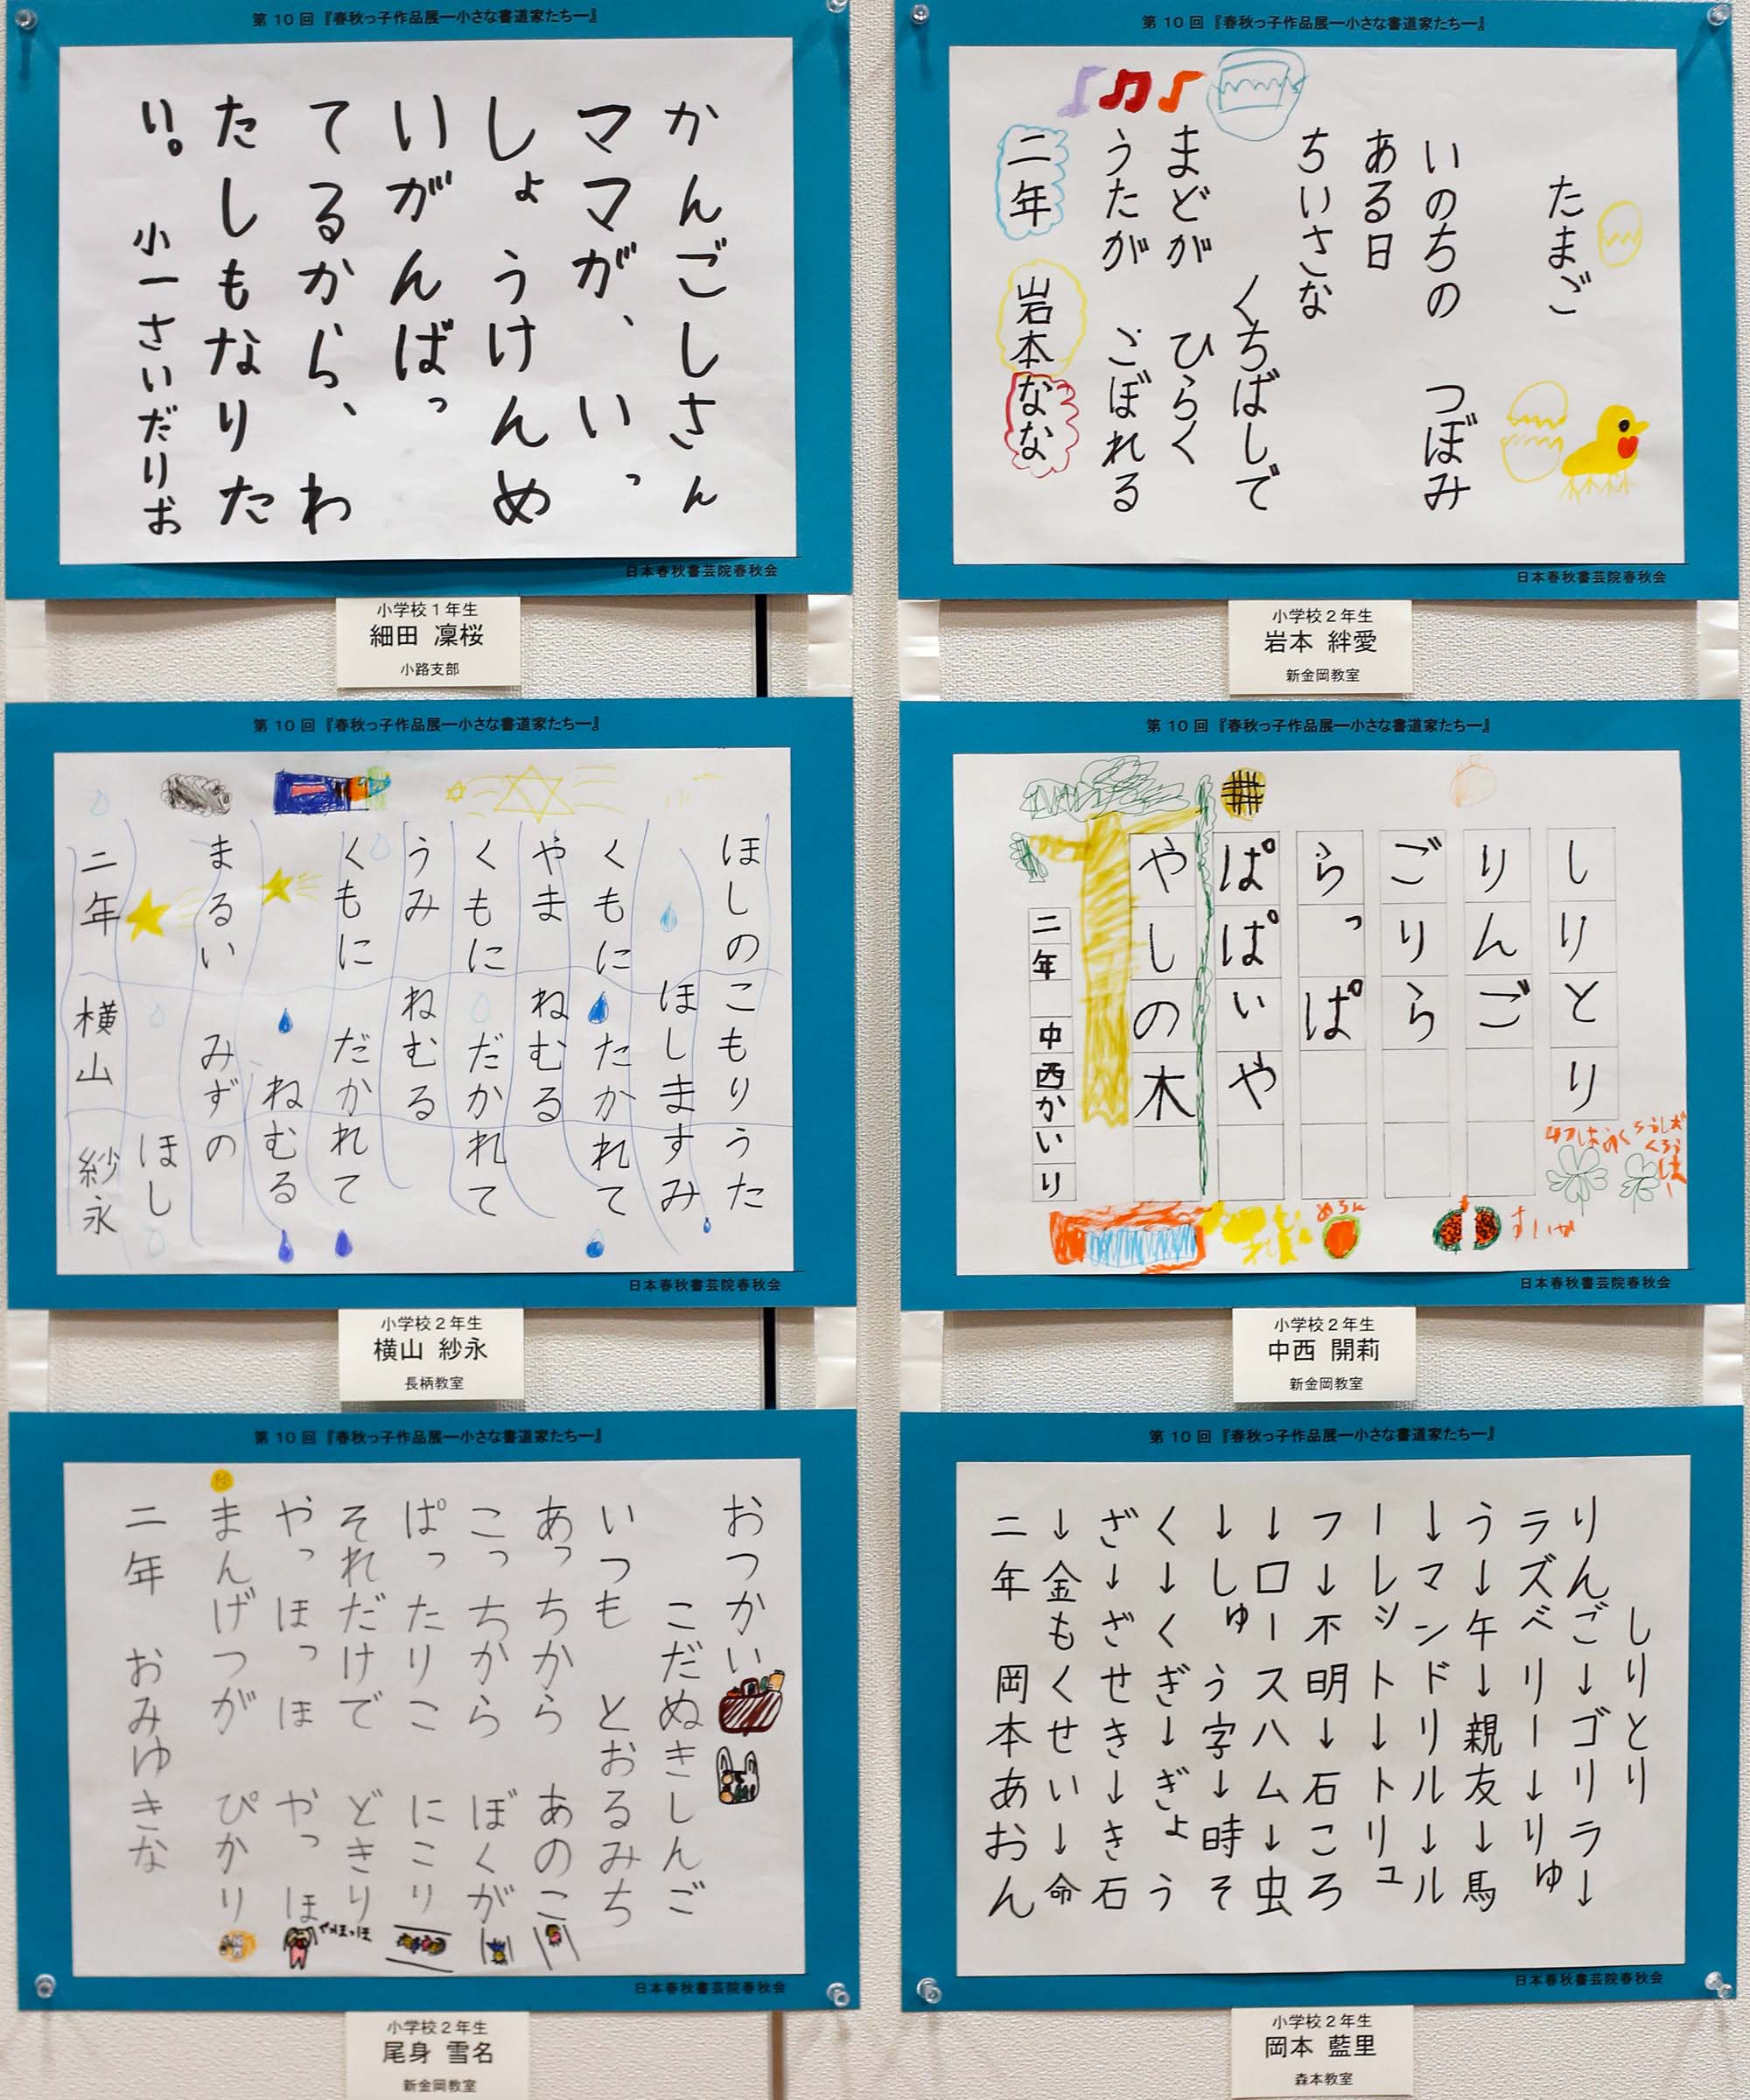 第10回『春秋っ子作品展―小さな書道家たち―』
かんごしさん
ママが、いっ
しょうけんめ
いがんばっ
てるから、わ
たしもなりた
い。 小一さいだりお
日本春秋書芸院春秋会
小学校1年生
細田 凜桜
小路支部
第10回『春秋っ子作品展―小さな書道家たち―』
たまご
いのちの つぼみ
ある日
ちいさな
くちばしで
まどが ひらく
うたが こぼれる
二年 岩本なな
日本春秋書芸院春秋会
小学校2年生
岩本 絆愛
新金岡教室
第10回『春秋っ子作品展―小さな書道家たち―』
ほしのこもりうた
ほしますみ
くもに たかれて
やま ねむる
くもに だかれて
うみ ねむる
くもに だかれて
ねむる
まるい みずの
ほし
二年 横山 紗永
日本春秋書芸院春秋会
小学校2年生
横山 紗永
長柄教室
第10回『春秋っ子作品展―小さな書道家たち―』
しりとり
りんご
ごりら
らっぱ
ぱぱいや
やしの木
二年 中西かいり
めろん
すいか
日本春秋書芸院春秋会
小学校2年生
中西 開莉
新金岡教室
第10回『春秋っ子作品展―小さな書道家たち―』
おつかい
こだぬきしんご
いつも とおるみち
あっちから あのこ
こっちから ぼくが
ぱったりこ にこり
それだけで どきり
やっほっほ やっほ
まんげつが ぴかり
二年 おみゆきな
日本春秋書芸院春秋会
小学校2年生
尾身 雪名
新金岡教室
第10回『春秋っ子作品展―小さな書道家たち―』
しりとり
りんご↓ゴリラ↓
ラズベリー↓りゅ
う↓午↓親友↓馬
↓マンドリル↓ル
ーレット↓トリュ
フ↓不明↓石ころ
↓ロースハム↓虫
↓しゅう字↓時そ
く↓くぎ↓ぎょう
ざ↓ざせき↓き石
↓金もくせい↓命
二年 岡本あおん
日本春秋書芸院春秋会
小学校2年生
岡本 藍里
森本教室